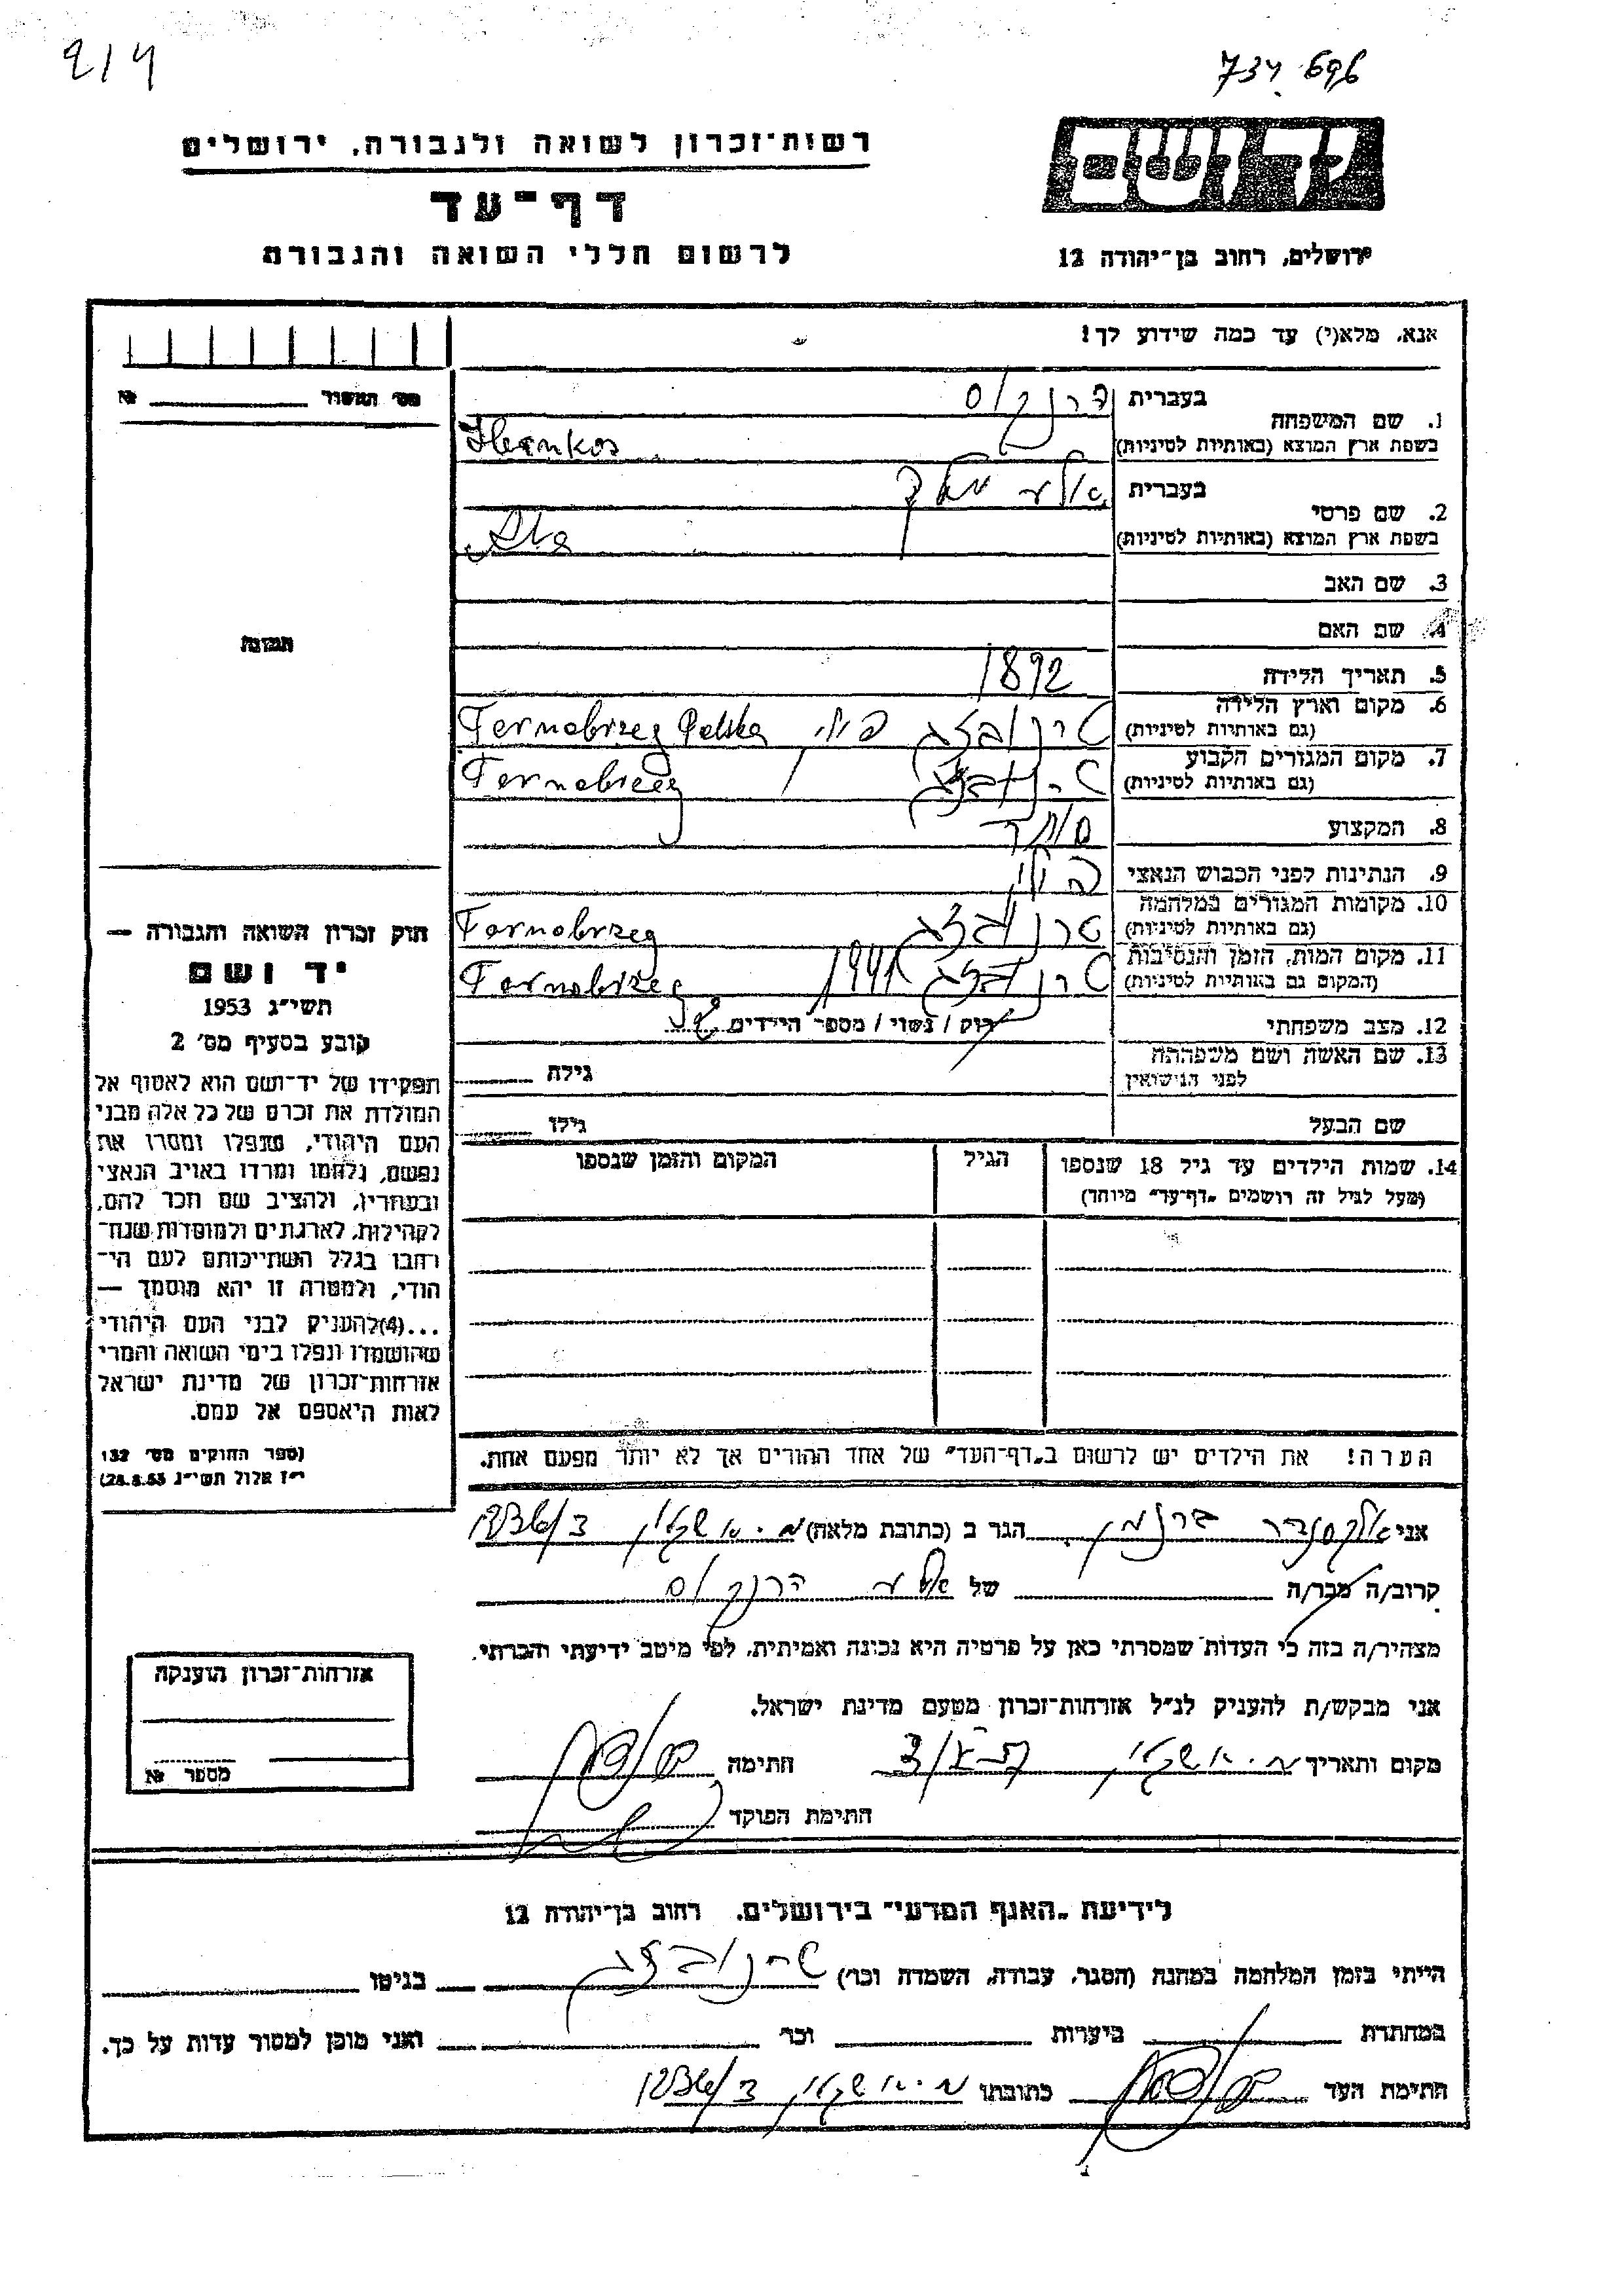 214
734 696
רשות־זכרון לשואה ולגבורה, ירושלים
דף־עד
לרשום חללי השואה והגבורה
יד ושם
ירושלים, רחוב בן־יהודה 12
אנא, מלא(י) עד כמה שידוע לך!
מס' תמשור №
1. שם המשפחה
בעברית הרנקוס
בשפת ארץ המוצא (באותיות לטיניות)
2. שם פרטי
בעברית
בשפת ארץ המוצא (באותיות לטיניות)
3. שם האב
4. שם האם
5. תאריך הלידה 1892
6. מקום וארץ הלידה
(גם באותיות לטיניות) טרנובזג פולין Ternobrzeg Polska
7. מקום המגורים הקבוע
(גם באותיות לטיניות) טרנובזג Ternobrzeg
8. המקצוע סוחר
9. הנתינות לפני הכבוש הנאצי פולין
10. מקומות המגורים במלחמה
(גם באותיות לטיניות) טרנובזג Ternobrzeg
11. מקום המות, הזמן והנסיבות
(המקום גם באותיות לטיניות) טרנובזג 1941 Ternobrzeg
12. מצב משפחתי רוק / נשוי / מספר הילדים
13. שם האשה ושם משפחתה
לפני הנישואין גילה
שם הבעל גילו
14. שמות הילדים עד גיל 18 שנספו הגיל המקום והזמן שנספו
(מעל לגיל זה רושמים „דף־עד" מיוחד)
הערה! את הילדים יש לרשום ב„דף־העד" של אחד ההורים אך לא יותר מפעם אחת.
תמונה
חוק זכרון השואה והגבורה —
יד ושם
תשי"ג 1953
קובע בסעיף מס' 2
תפקידו של יד־ושם הוא לאסוף אל
המולדת את זכרם של כל אלה מבני
העם היהודי, שנפלו ומסרו את
נפשם, נלחמו ומרדו באויב הנאצי
ובעוזריו, ולהציב שם וזכר להם,
לקהילות, לארגונים ולמוסדות שנח־
רבו בגלל השתייכותם לעם הי־
הודי, ולמטרה זו יהא מוסמך —
...(4)להעניק לבני העם היהודי
שהושמדו ונפלו בימי השואה והמרי
אזרחות־זכרון של מדינת ישראל
לאות היאספם אל עמם.
(ספר החוקים מס' 132
י"ז אלול תשי"ג 28.8.53)
אני אלכסנדר ברנמן הגר ב (כתובת מלאה) מ. אשקלון
קרוב/ה מכר/ה של הרנקוס
מצהיר/ה בזה כי העדות שמסרתי כאן על פרטיה היא נכונה ואמיתית, לפי מיטב ידיעתי והכרתי.
אני מבקש/ת להעניק לנ"ל אזרחות־זכרון מטעם מדינת ישראל.
מקום ותאריך מ. אשקלון חתימה
חתימת הפוקד
אזרחות־זכרון הוענקה
מספר №
לידיעת „האגף המדעי" בירושלים, רחוב בן־יהודה 12
הייתי בזמן המלחמה במחנה (הסגר, עבודה, השמדה וכו') טרנובזג בגיטו
במחתרת ביערות וכו' ואני מוכן למסור עדות על כך.
חתימת העד כתובתו מ. אשקלון